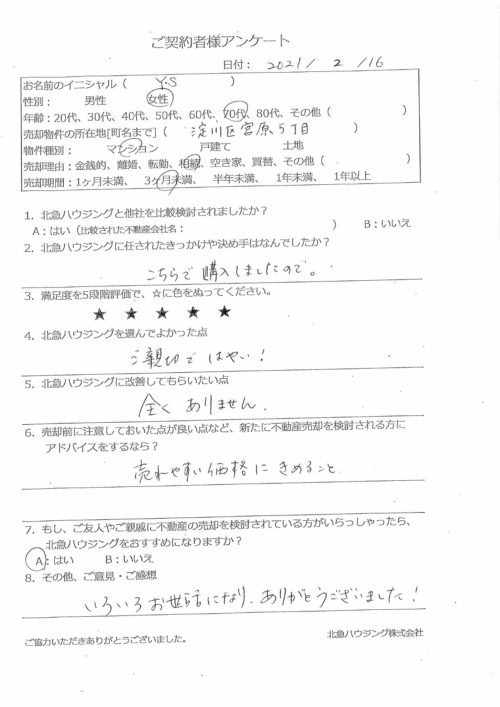 ご契約者様アンケート
日付： 2021 / 2 / 16
お名前のイニシャル（ Y・S ）
性別： 男性 女性
年齢：20代、30代、40代、50代、60代、70代、80代、その他（ ）
売却物件の所在地[町名まで]（ 淀川区宮原5丁目 ）
物件種別： マンション 戸建て 土地
売却理由：金銭的、離婚、転勤、相続、空き家、買替、その他（ ）
売却期間：1ヶ月未満、 3ヶ月未満、 半年未満、 1年未満、 1年以上
1．北急ハウジングと他社を比較検討されましたか？
A：はい（比較された不動産会社名： ） B：いいえ
2．北急ハウジングに任されたきっかけや決め手はなんでしたか？
こちらで購入しましたので。
3．満足度を5段階評価で、☆に色をぬってください。
★ ★ ★ ★ ★
4．北急ハウジングを選んでよかった点
ご親切で はやい！
5．北急ハウジングに改善してもらいたい点
全く ありません．
6．売却前に注意しておいた点が良い点など、新たに不動産売却を検討される方に
アドバイスをするなら？
売れやすい価格に きめること
7．もし、ご友人やご親戚に不動産の売却を検討されている方がいらっしゃったら、
北急ハウジングをおすすめになりますか？
A：はい B：いいえ
8．その他、ご意見・ご感想
いろいろお世話になり、ありがとうございました！
ご協力いただきありがとうございました。 北急ハウジング株式会社